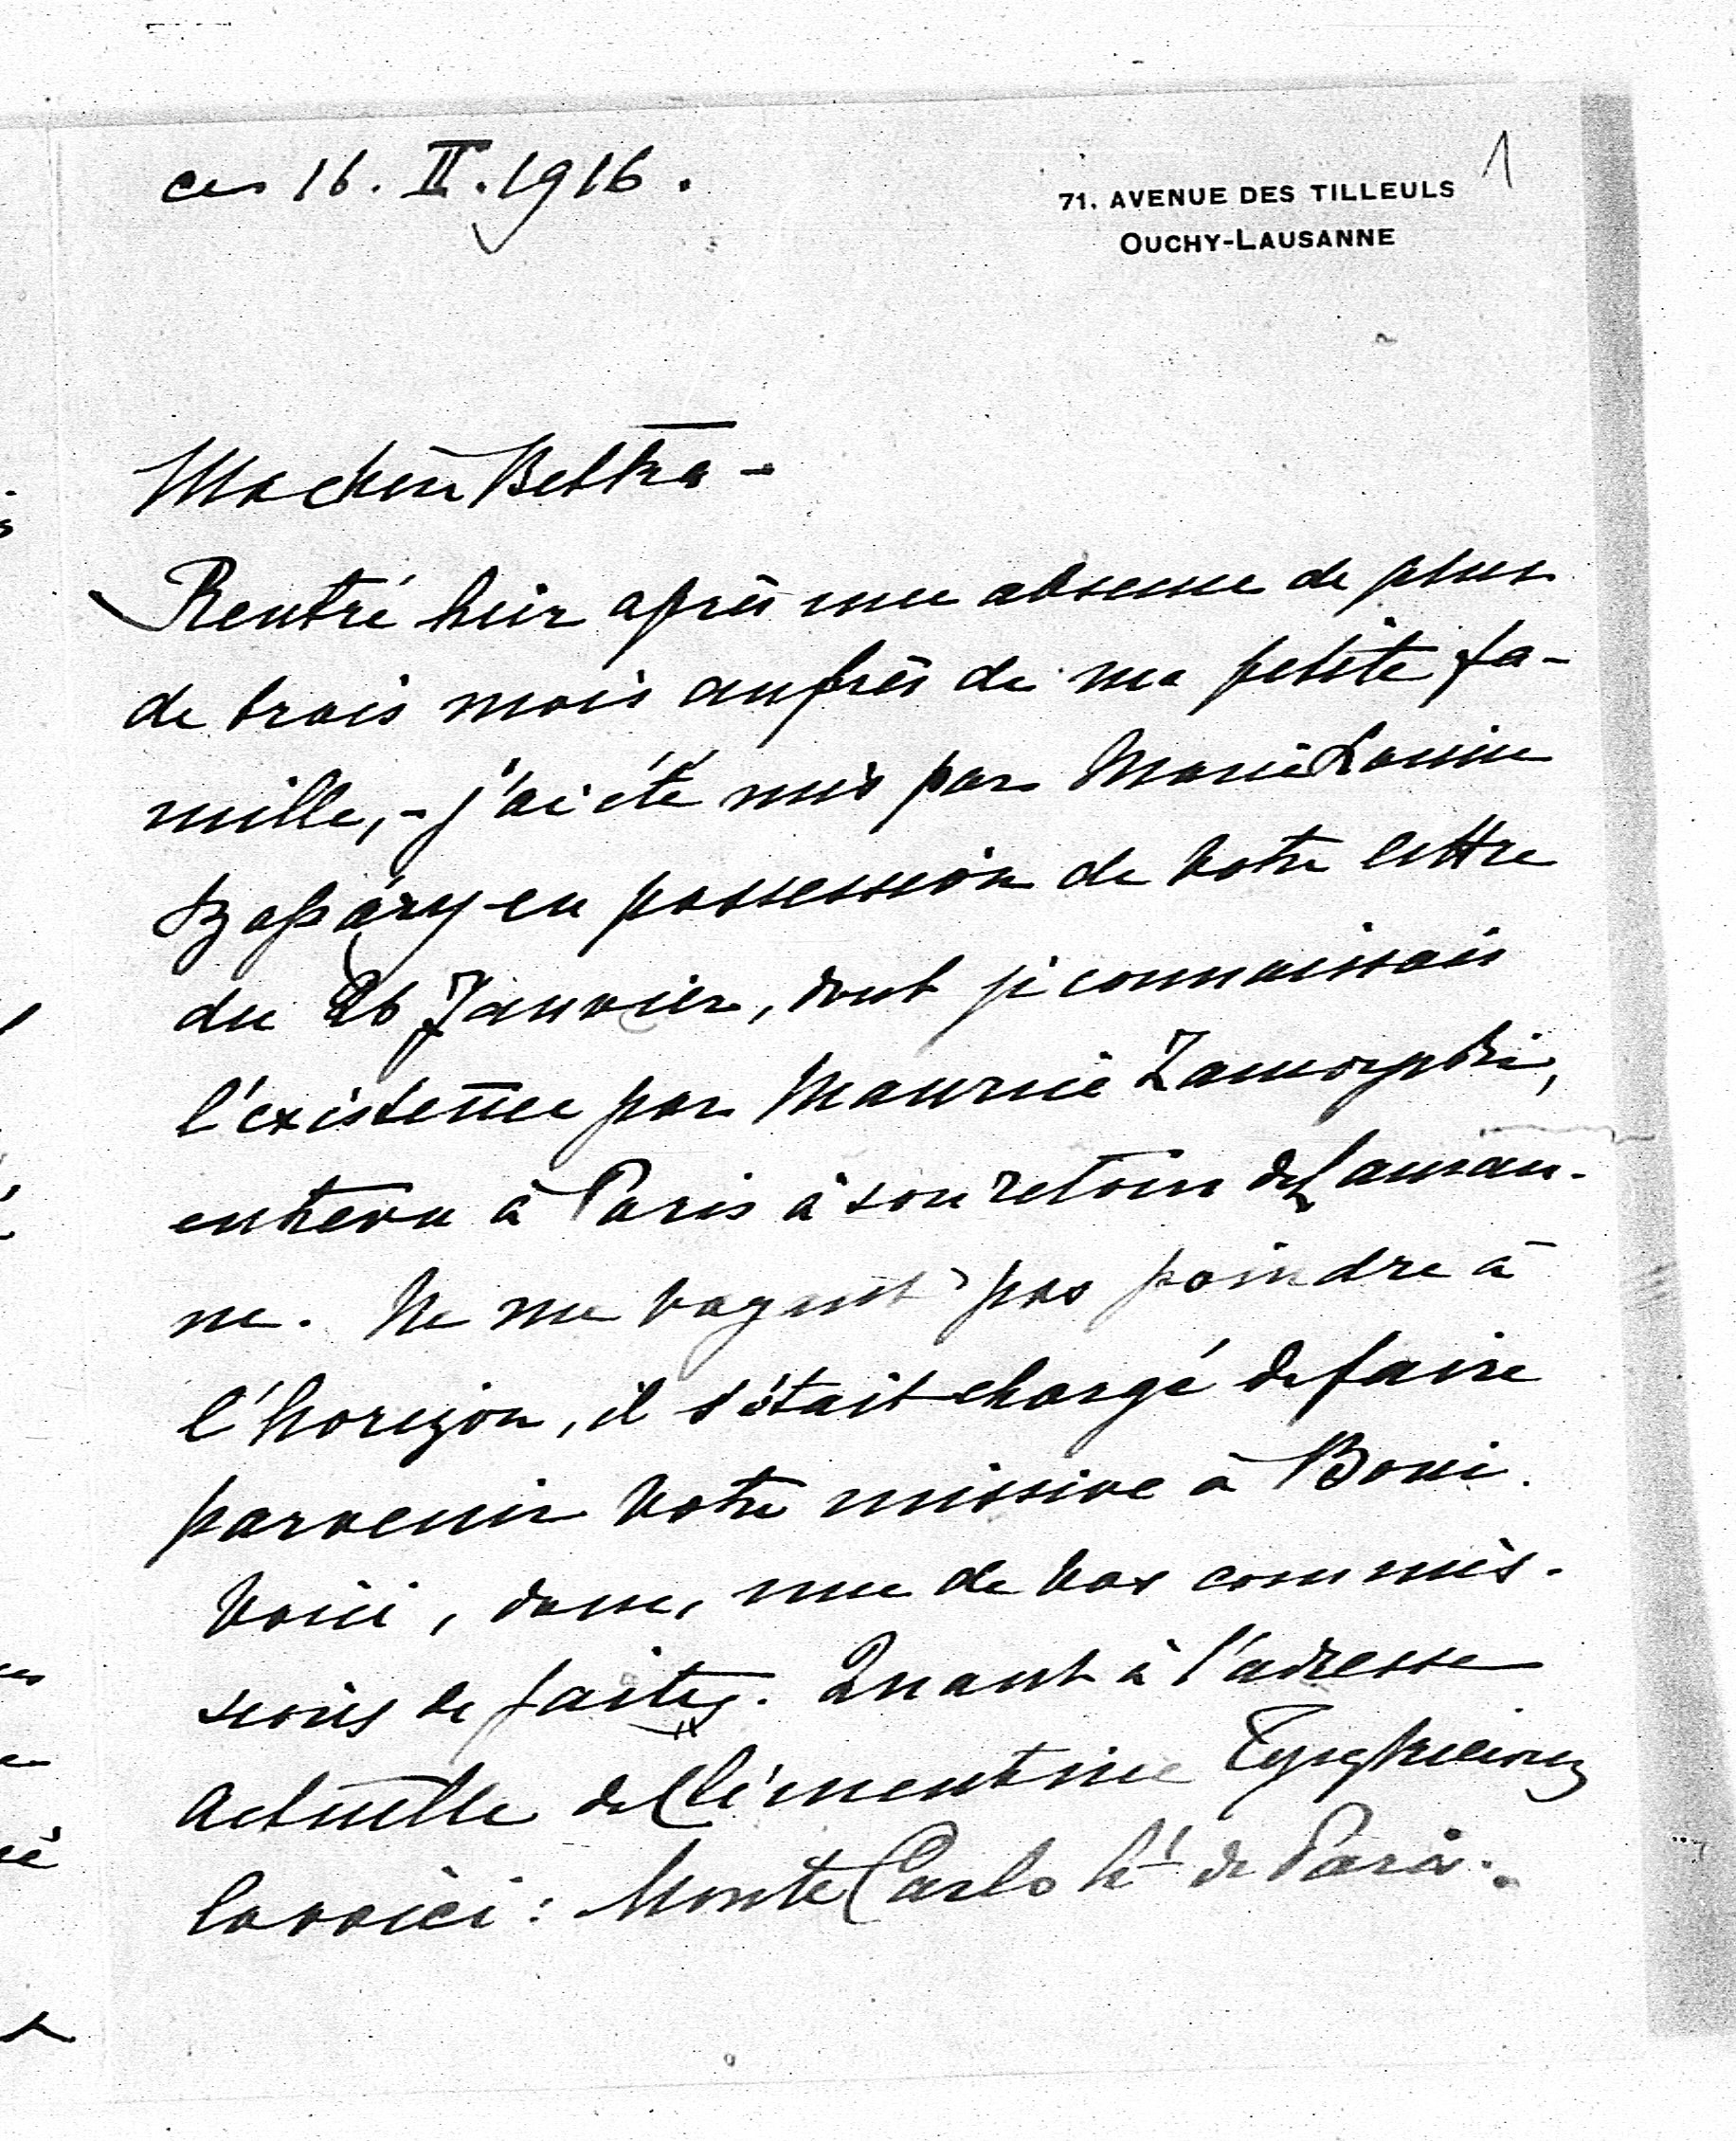 ces 16. II. 1916.
1
71. AVENUE DES TILLEULS
OUCHY-LAUSANNE
Ma chère Betka -
Rentré hier après une absence de plus
de trois mois auprès de ma petite fa-
mille, - j'ai été mis par Marie Louise
Szapáry en possession de votre lettre
du 26 Janvier, dont je connaissais
l'existence par Maurice Zamoyski,
entrevu à Paris à son retour de Lausan-
ne. Ne me voyant pas poindre à
l'horizon, il s'était chargé de faire
parvenir votre missive à Boni.
Voici, donc, une de vos commis-
sions de faites. Quant à l'adresse
actuelle de Clémentine Tyszkiewicz
la voici : Monte Carlo Hl de Paris.